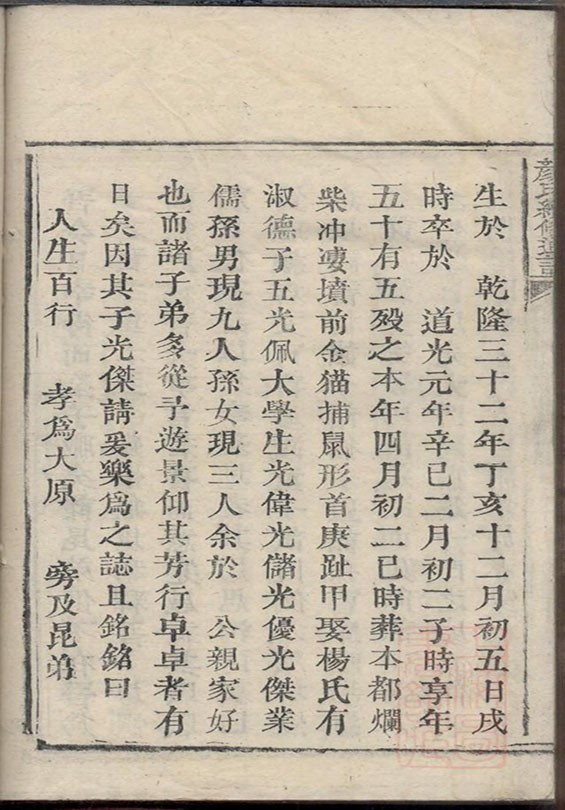 彦氏續修通譜
生於　乾隆三十二年丁亥十二月初五日戌
時卒於　道光元年辛巳二月初二子時享年
五十有五殁之本年四月初二巳時葬本都爛
柴冲婁墳前金猫捕鼠形首庚趾甲娶楊氏有
淑德子五光佩大學生光偉光儲光優光傑業
儒孫男現九人孫女現三人余於　公親家好
也而諸子弟多從予遊景仰其芳行卓卓者有
日矣因其子光傑請爰樂為之誌且銘銘曰
人生百行　孝爲大原　旁及昆弟